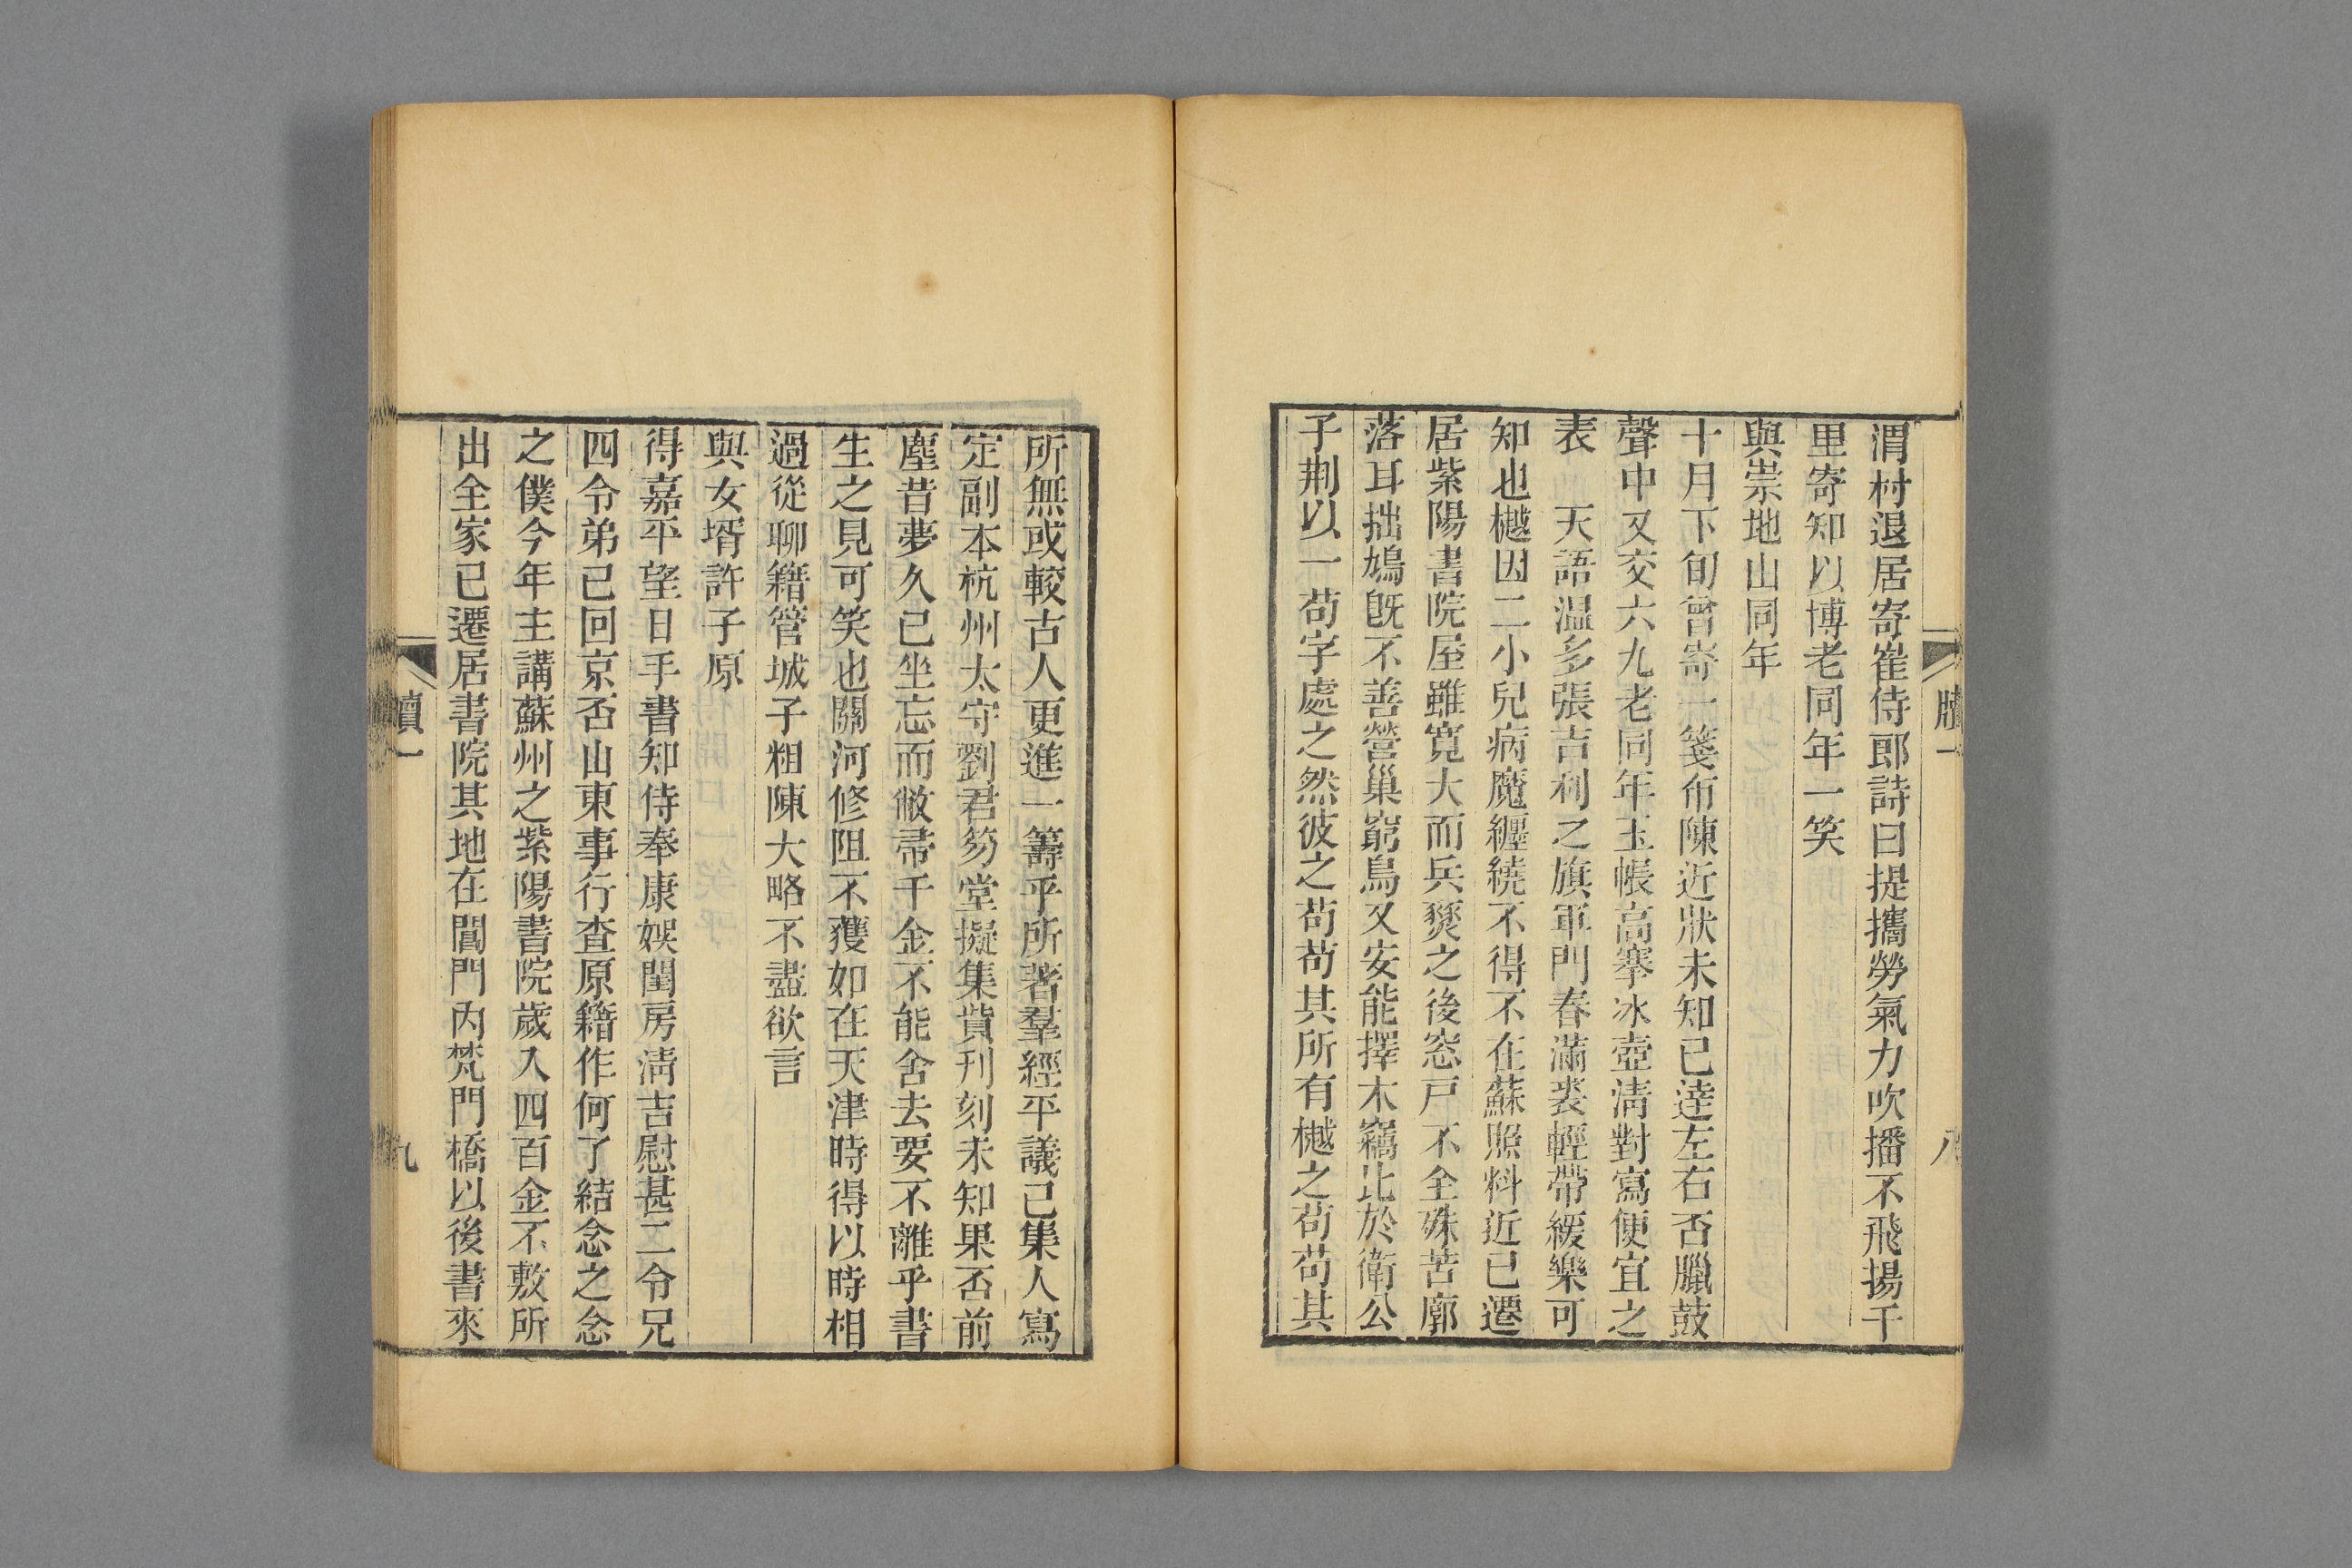 渭村退居寄崔侍郎詩曰提攜勞氣力吹播不飛揚千
里寄知以博老同年一笑
與崇地山同年
十月下旬曾寄一箋布陳近狀未知已達左右否臘鼓
聲中又交六九老同年玉帳高搴冰壺淸對寫便宜之
表　天語温多張吉利之旗軍門春滿裘輕帶緩樂可
知也樾因二小兒病魔纒繞不得不在蘇照料近已遷
居紫陽書院屋雖寬大而兵燹之後窓戸不全殊苦廓
落耳拙鳩旣不善營巢窮鳥又安能擇木竊比於衛公
子荆以一苟字處之然彼之苟苟其所有樾之苟苟其
牘一
八
所無或較古人更進一籌乎所著羣經平議已集人寫
定副本杭州太守劉君笏堂擬集貲刋刻未知果否前
塵昔夢久已坐忘而敝帚千金不能舍去要不離乎書
生之見可笑也關河修阻不獲如在天津時得以時相
過從聊籍管城子粗陳大略不盡欲言
與女壻許子原
得嘉平望日手書知侍奉康娛閨房淸吉慰甚二令兄
四令弟已回京否山東事行查原籍作何了結念之念
之僕今年主講蘇州之紫陽書院歲入四百金不敷所
出全家已遷居書院其地在閶門內梵門橋以後書來
牘一
九